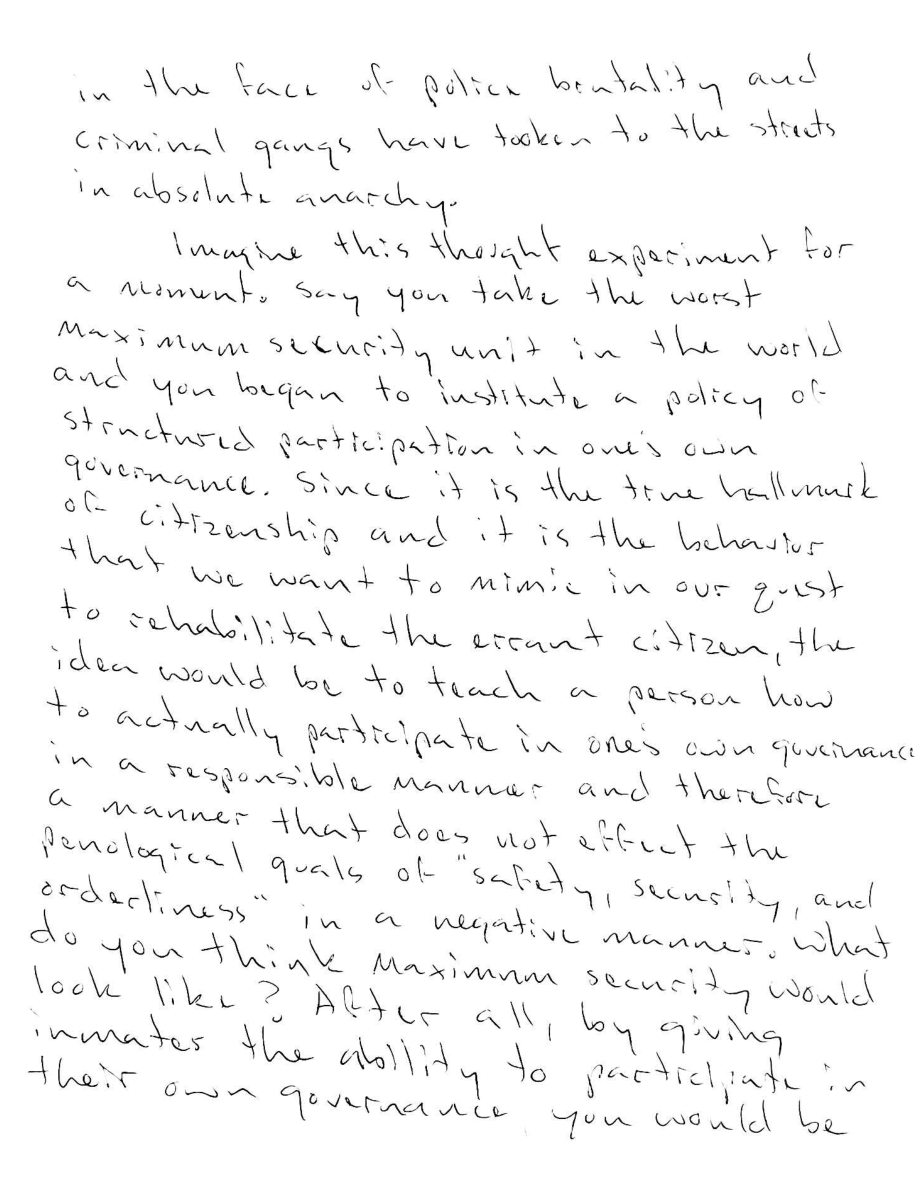 in the face of police brutality and
criminal gangs have tooken to the streets
in absolute anarchy.
Imagine this thought experiment for
a moment. Say you take the worst
maximum security unit in the world
and you began to institute a policy of
structured participation in one's own
governance. Since it is the true hallmark
of citizenship and it is the behavior
that we want to mimic in our quest
to rehabilitate the errant citizen, the
idea would be to teach a person how
to actually participate in one's own governance
in a responsible manner and therefore
a manner that does not effect the
penological goals of "safety, security, and
orderliness" in a negative manner. What
do you think maximum security would
look like? After all, by giving
inmates the abillity to participate in
their own governance you would be